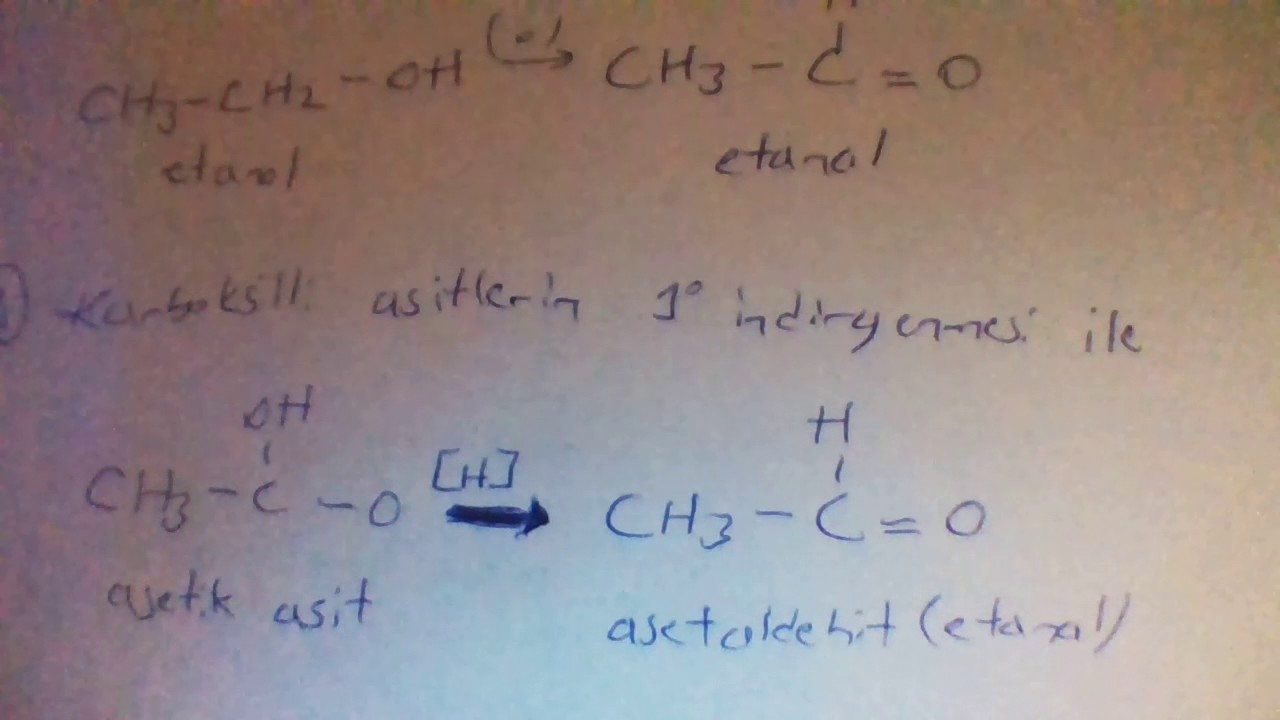 H
CH3-CH2-OH (o) → CH3-C=O
etanol etanal
Karboksili asitlerin 1° indirgenmesi ile
OH H
CH3-C-O [H] → CH3-C=O
asetik asit asetaldehit (etanal)